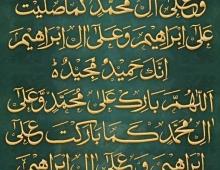 وَعَلَى آلِ مُحَمَّدٍ كَمَا صَلَّيْتَ
عَلَى إِبْرَاهِيمَ وَعَلَى آلِ إِبْرَاهِيمَ
إِنَّكَ حَمِيدٌ مَجِيدٌ
اللَّهُمَّ بَارِكْ عَلَى مُحَمَّدٍ وَعَلَى
آلِ مُحَمَّدٍ كَمَا بَارَكْتَ عَلَى
إِبْرَاهِيمَ وَعَلَى آلِ إِبْرَاهِيمَ